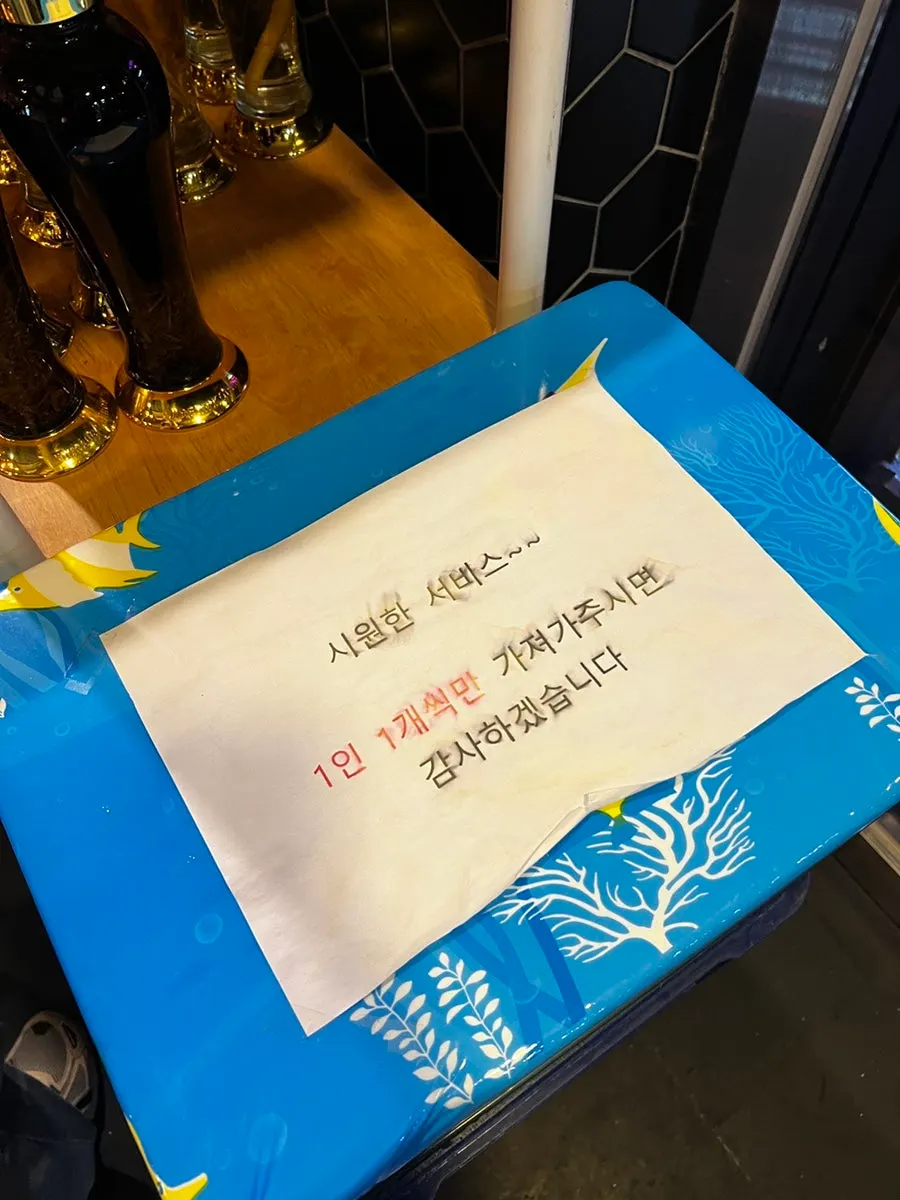 시원한 서비스~~
1인 1개씩만 가져가주시면
감사하겠습니다